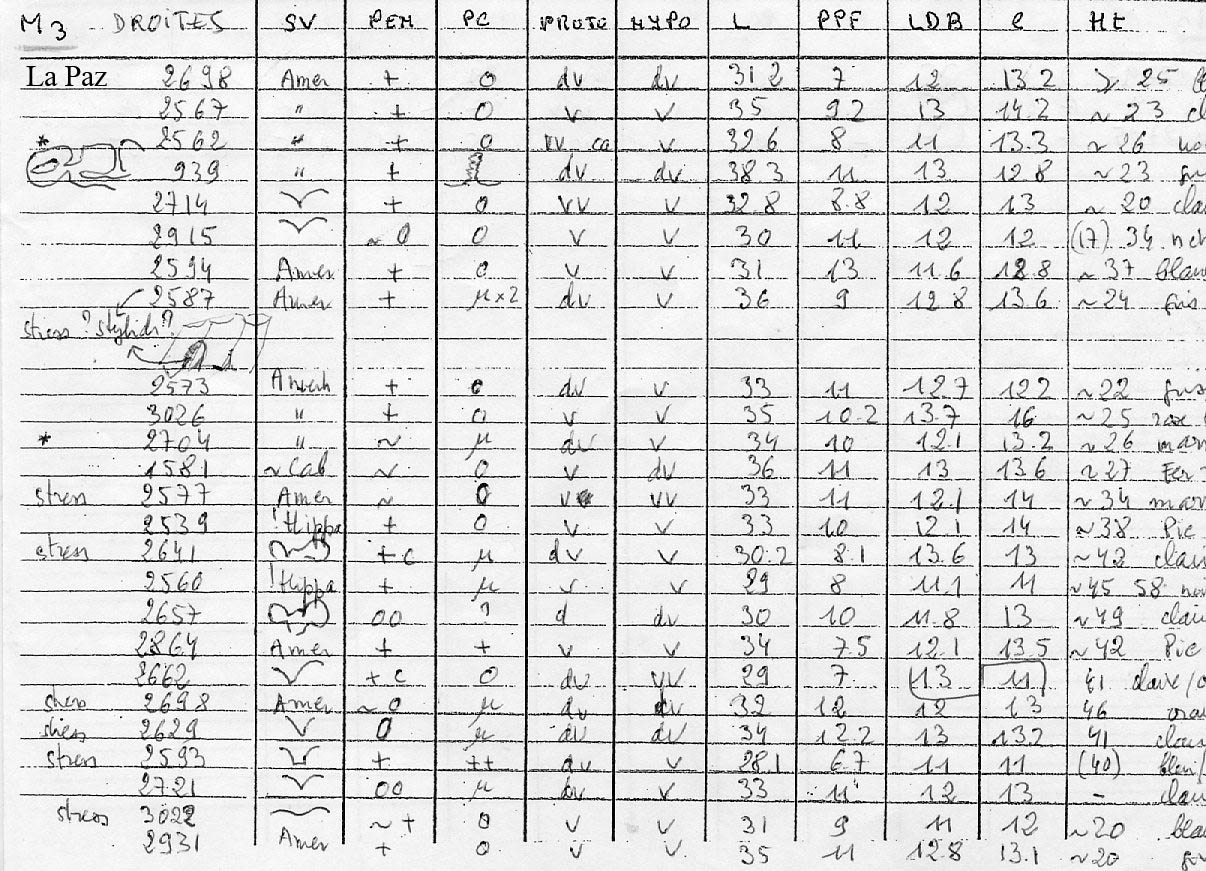 M3 DROITES SV PEM PC PROTO HYPO L PPF LDB l Ht
La Paz 2698 Amer + 0 dv dv 31.2 7 12 13.2 25
2567 " + 0 v v 35 9.2 13 14.2 ~ 23
* 2562 " + 0 vv ca v 32.6 8 11 13.3 ~ 26
939 " + dv dv 38.3 11 13 12.8 ~23
2714 + 0 vv v 32.8 8.8 12 13 ~ 20
2915 ~ 0 0 v v 30 11 12 12 (17) 34
2594 Amer + 0 v v 31 13 11.6 12.8 ~ 37
2587 Amer + µ x2 dv v 36 9 12.8 13.6 ~24
stress ? ?
2573 + 0 dv v 33 11 12.7 12.2 ~22
3026 " + 0 v v 35 10.2 13.7 16 ~25
* 2704 " ~ µ dv v 34 10 12.1 13.2 ~26
1581 ~ Cab ~ 0 v dv 36 11 13 13.6 ~27
stress 2577 Amer ~ 0 vv 33 11 12.1 14 ~34
2539 !Hippa + 0 v v 33 10 12.1 14 ~38 Pic
stress 2641 + c µ dv v 30.2 8.1 13.6 13 ~42
2560 !Hippa + µ v v 29 8 11.1 11 ~45 58
2657 00 ? d dv 30 10 11.8 13 ~49
2864 Amer + + v v 34 7.5 12.1 13.5 ~42 Pic
2662 + c 0 dv vv 29 7 13 11 41
stress 2698 Amer ~ 0 µ dv dv 32 12 12 13 46
stress 2629 0 µ dv dv 34 12.2 13 13.2 41
stress 2593 + ++ dv v 28.1 6.7 11 11 (40)
2721 00 µ dv v 33 11 12 13 -
stress 3022 ~ + 0 v v 31 9 11 12 ~20
2931 Amer + 0 v v 35 11 12.8 13.1 ~20